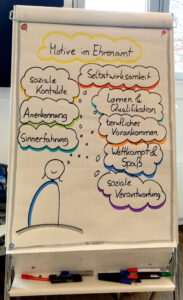 Motive im Ehrenamt
soziale
Kontakte
Anerkennung
Sinnerfahrung
Selbstwirksamkeit
Lernen &
Qualifikation
berufliches
Vorankommen
Wettkampf &
Spaß
soziale
Verantwortung